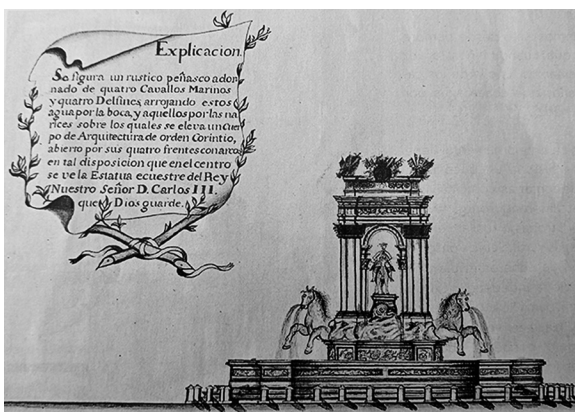 Explicacion.
Se figura un rustico peñasco ador
nado de quatro Cavallos Marinos
y quatro Delfines, arrojando estos
agua por la boca, y aquellos por las na
rices sobre los quales se eleva un Cuer
po de Arquitectura de orden Corintio,
abierto por sus quatro frentes con arco
en tal disposicion que en el centro
se ve la Estatua ecuestre del Rey
Nuestro Señor D. Carlos III.
que Dios guarde.